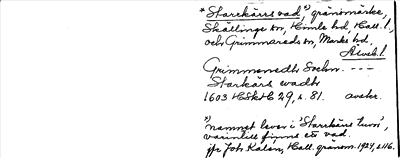 * Starckärrs vad,¹⁾ gränsmärke,
Skällinge sn, Himle hd, Hall. l.,
och Grimmareds sn, Marks hd.
Älvsb. l.
Grimmeredts Sochn - - -
Starkärs wadtt
1603 HSH 29, s. 81. avskr.
¹⁾ namnet lever i 'Starrkärrs kvarn',
varintill finns ett vad.
jfr Joh. Kalén, Hall. gränsm. 1924, s. 116.